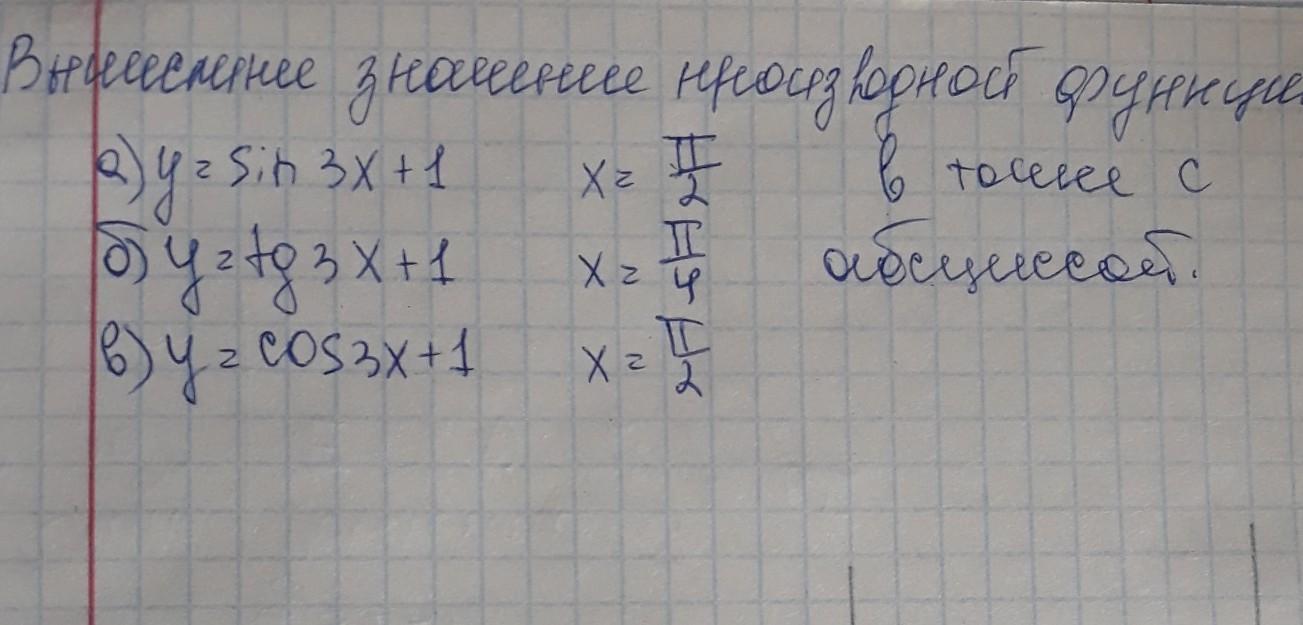 Вычислите значение производной функции
а) y = sin 3x + 1 x = π/2 в точке с
б) y = tg 3x + 1 x = π/4 абсциссой.
в) y = cos 3x + 1 x = π/2